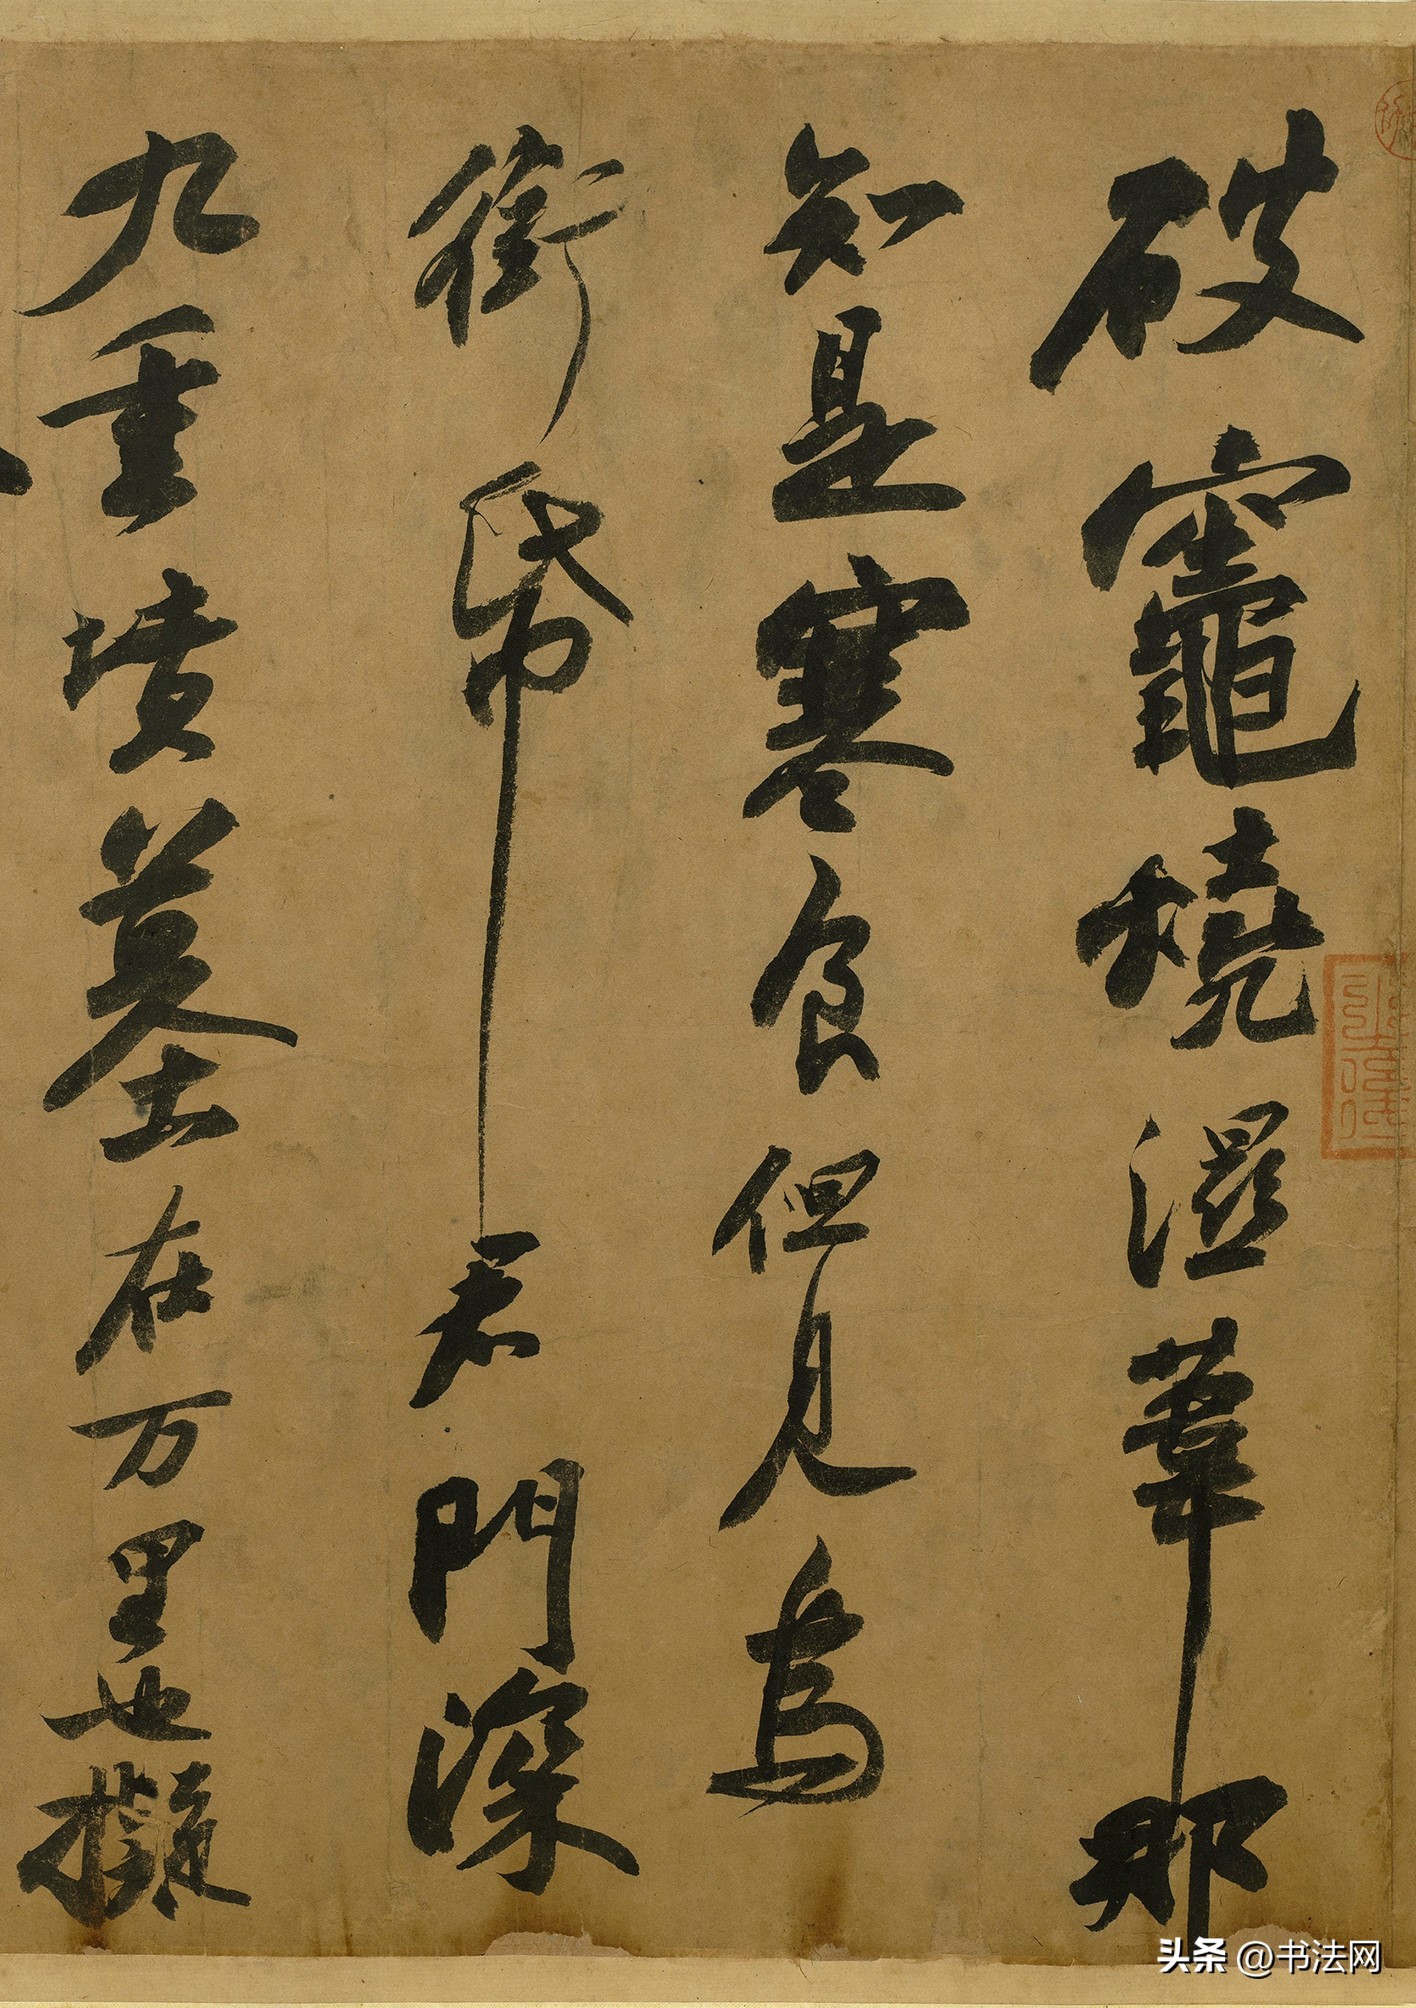 破竈燒濕葦那
知是寒食但見烏
銜帋君門深
九重墳墓在万里也擬
头条 @书法网